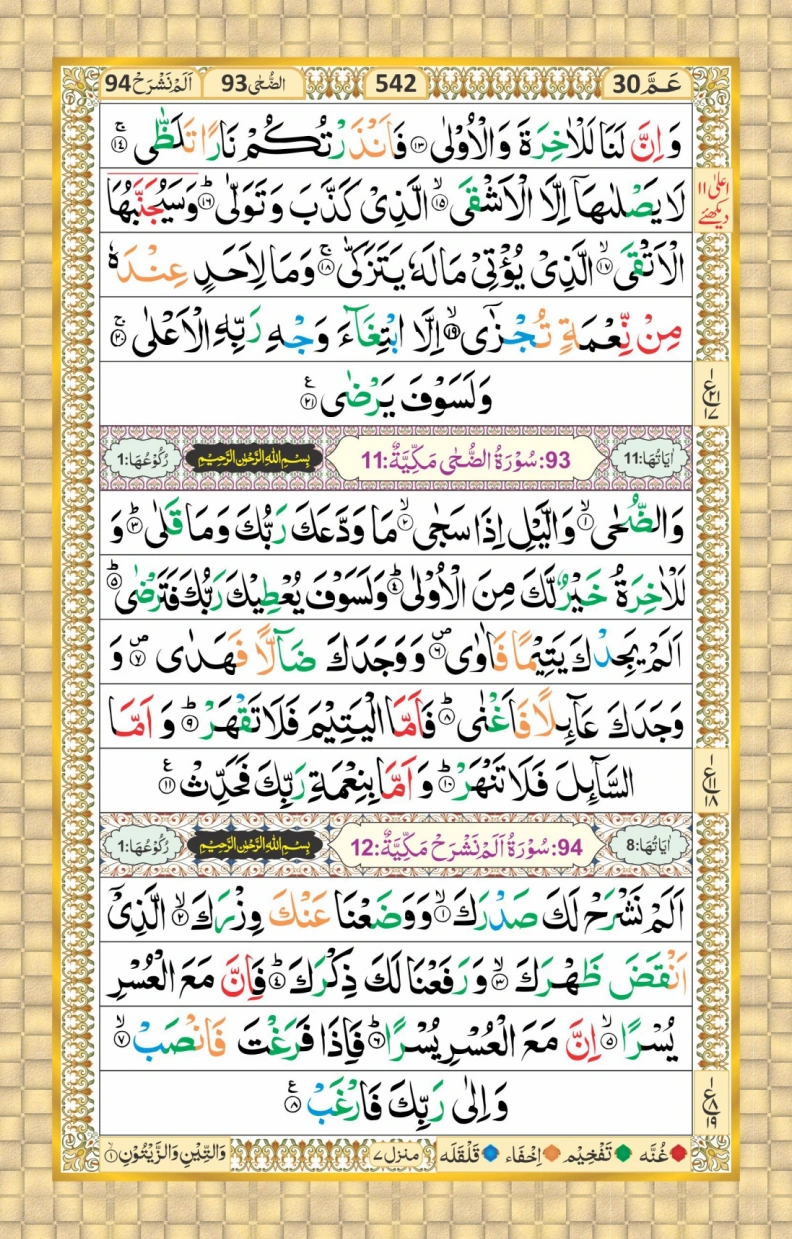 عَمَّ 30
542
الضُّحٰى 93
اَلَمْ نَشْرَحْ 94
وَ اِنَّ لَنَا لَلْاٰخِرَةَ وَ الْاُوْلٰى ۝۱۳ فَاَنْذَرْتُكُمْ نَارًا تَلَظّٰى ۚ۝۱۴
لَا یَصْلٰىهَاۤ اِلَّا الْاَشْقَى ۙ۝۱۵ الَّذِیْ كَذَّبَ وَ تَوَلّٰى ؕ۝۱۶ وَ سَیُجَنَّبُهَا
اعلٰی ۱۱ دیکھئے
الْاَتْقَى ۙ۝۱۷ الَّذِیْ یُؤْتِیْ مَالَهٗ یَتَزَكّٰى ۚ۝۱۸ وَ مَا لِاَحَدٍ عِنْدَهٗ
مِنْ نِّعْمَةٍ تُجْزٰۤى ۙ۝۱۹ اِلَّا ابْتِغَآءَ وَجْهِ رَبِّهِ الْاَعْلٰى ۚ۝۲۰
وَ لَسَوْفَ یَرْضٰى ۠۝۲۱
۱ ع ۲۱ ۱۷
اٰيَاتُهَا:11
93: سُوْرَةُ الضُّحٰى مَكِّيَّةٌ:11
بِسْمِ اللهِ الرَّحْمٰنِ الرَّحِيْمِ
رُكُوْعُهَا:1
وَ الضُّحٰى ۙ۝۱ وَ الَّیْلِ اِذَا سَجٰى ۙ۝۲ مَا وَدَّعَكَ رَبُّكَ وَ مَا قَلٰى ؕ۝۳ وَ
لَلْاٰخِرَةُ خَیْرٌ لَّكَ مِنَ الْاُوْلٰى ؕ۝۴ وَ لَسَوْفَ یُعْطِیْكَ رَبُّكَ فَتَرْضٰى ؕ۝۵
اَلَمْ یَجِدْكَ یَتِیْمًا فَاٰوٰى ۪۝۶ وَ وَجَدَكَ ضَآلًّا فَهَدٰى ۪۝۷ وَ
وَجَدَكَ عَآىِٕلًا فَاَغْنٰى ؕ۝۸ فَاَمَّا الْیَتِیْمَ فَلَا تَقْهَرْ ؕ۝۹ وَ اَمَّا
السَّآىِٕلَ فَلَا تَنْهَرْ ؕ۝۱۰ وَ اَمَّا بِنِعْمَةِ رَبِّكَ فَحَدِّثْ ۠۝۱۱
۱ ع ۱۱ ۱۸
اٰيَاتُهَا:8
94: سُوْرَةُ اَلَمْ نَشْرَحْ مَكِّيَّةٌ:12
بِسْمِ اللهِ الرَّحْمٰنِ الرَّحِيْمِ
رُكُوْعُهَا:1
اَلَمْ نَشْرَحْ لَكَ صَدْرَكَ ۙ۝۱ وَ وَضَعْنَا عَنْكَ وِزْرَكَ ۙ۝۲ الَّذِیْۤ
اَنْقَضَ ظَهْرَكَ ۙ۝۳ وَ رَفَعْنَا لَكَ ذِكْرَكَ ؕ۝۴ فَاِنَّ مَعَ الْعُسْرِ
یُسْرًا ۙ۝۵ اِنَّ مَعَ الْعُسْرِ یُسْرًا ؕ۝۶ فَاِذَا فَرَغْتَ فَانْصَبْ ۙ۝۷
وَ اِلٰى رَبِّكَ فَارْغَبْ ۠۝۸
۱ ع ۸ ۱۹
غُنَّه تَفْخِيْم اِخْفَاء قَلْقَلَه
منزل ۷
وَالتِّيْنِ وَالزَّيْتُوْنِ ۙ۝۱